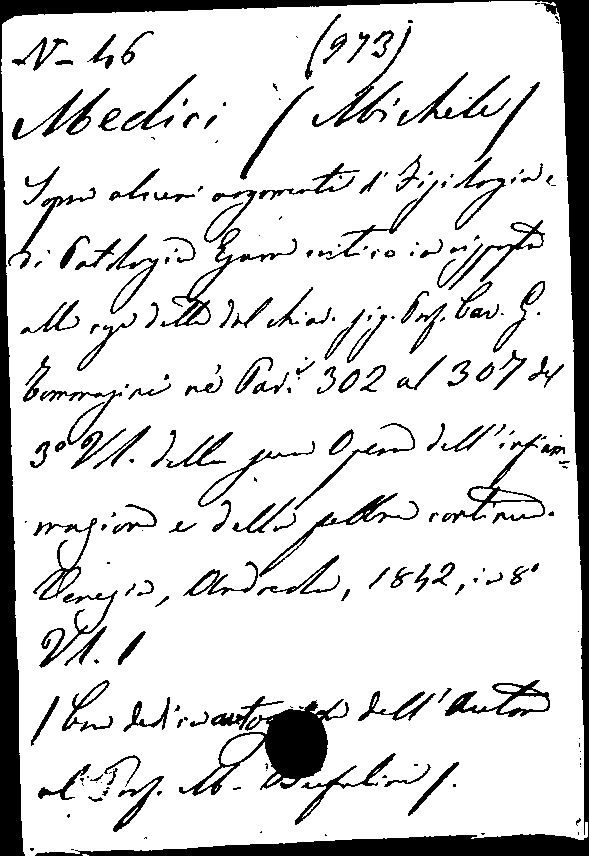 N- 46 (973)
Medici (Michele)
Sopra alcuni argomenti di Fisiologia e
di Patologia Esame critico in risposta
alle cose dette dal chiar. sig. Prof. Cav. G.
Tommasini nè Par.i 302 al 307 del
3° Vol. della sua Opera dell'infiam
mazione e della febbre continua.
Venezia, Andreola, 1842, in 8°
Vol. 1
(Con dedica autografa dell'Autore
al Prof. M. Bufalini).